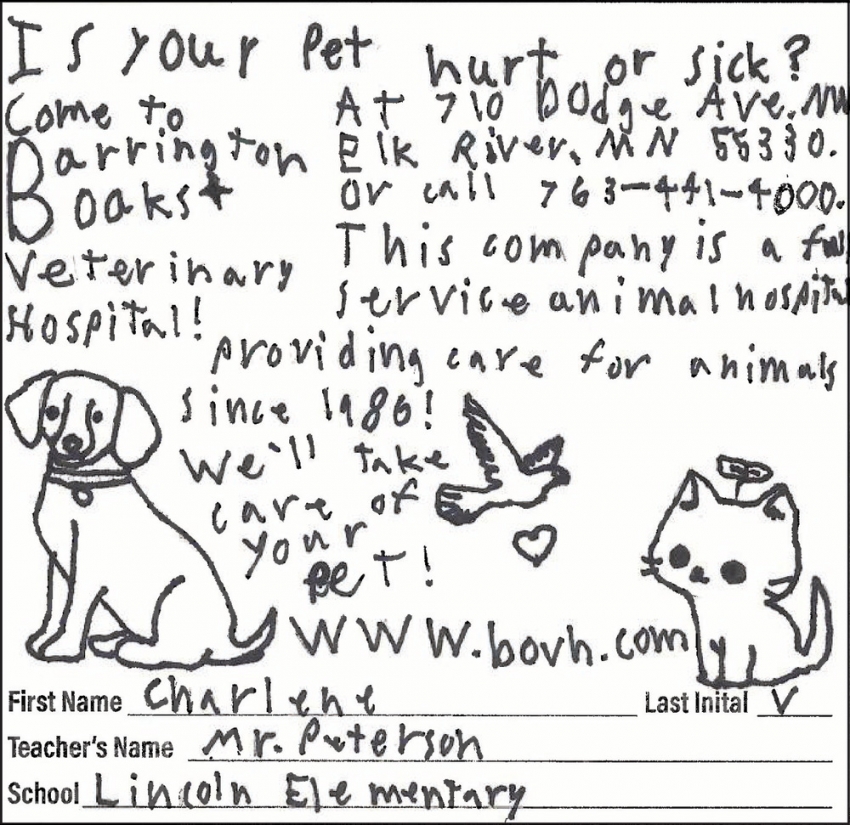 Is your Pet hurt or sick?
Come to
Barrington
Boaks
Veterinary
Hospital!
At 710 Dodge Ave. NW
Elk River, MN 55330.
or call 763-441-4000.
This company is a full
service animal hospital
providing care for animals
since 1986!
We'll take
care of
your
pet!
WWW.bovh.com
First Name Charlene Last Inital V
Teacher's Name Mr. Peterson
School Lincoln Elementary